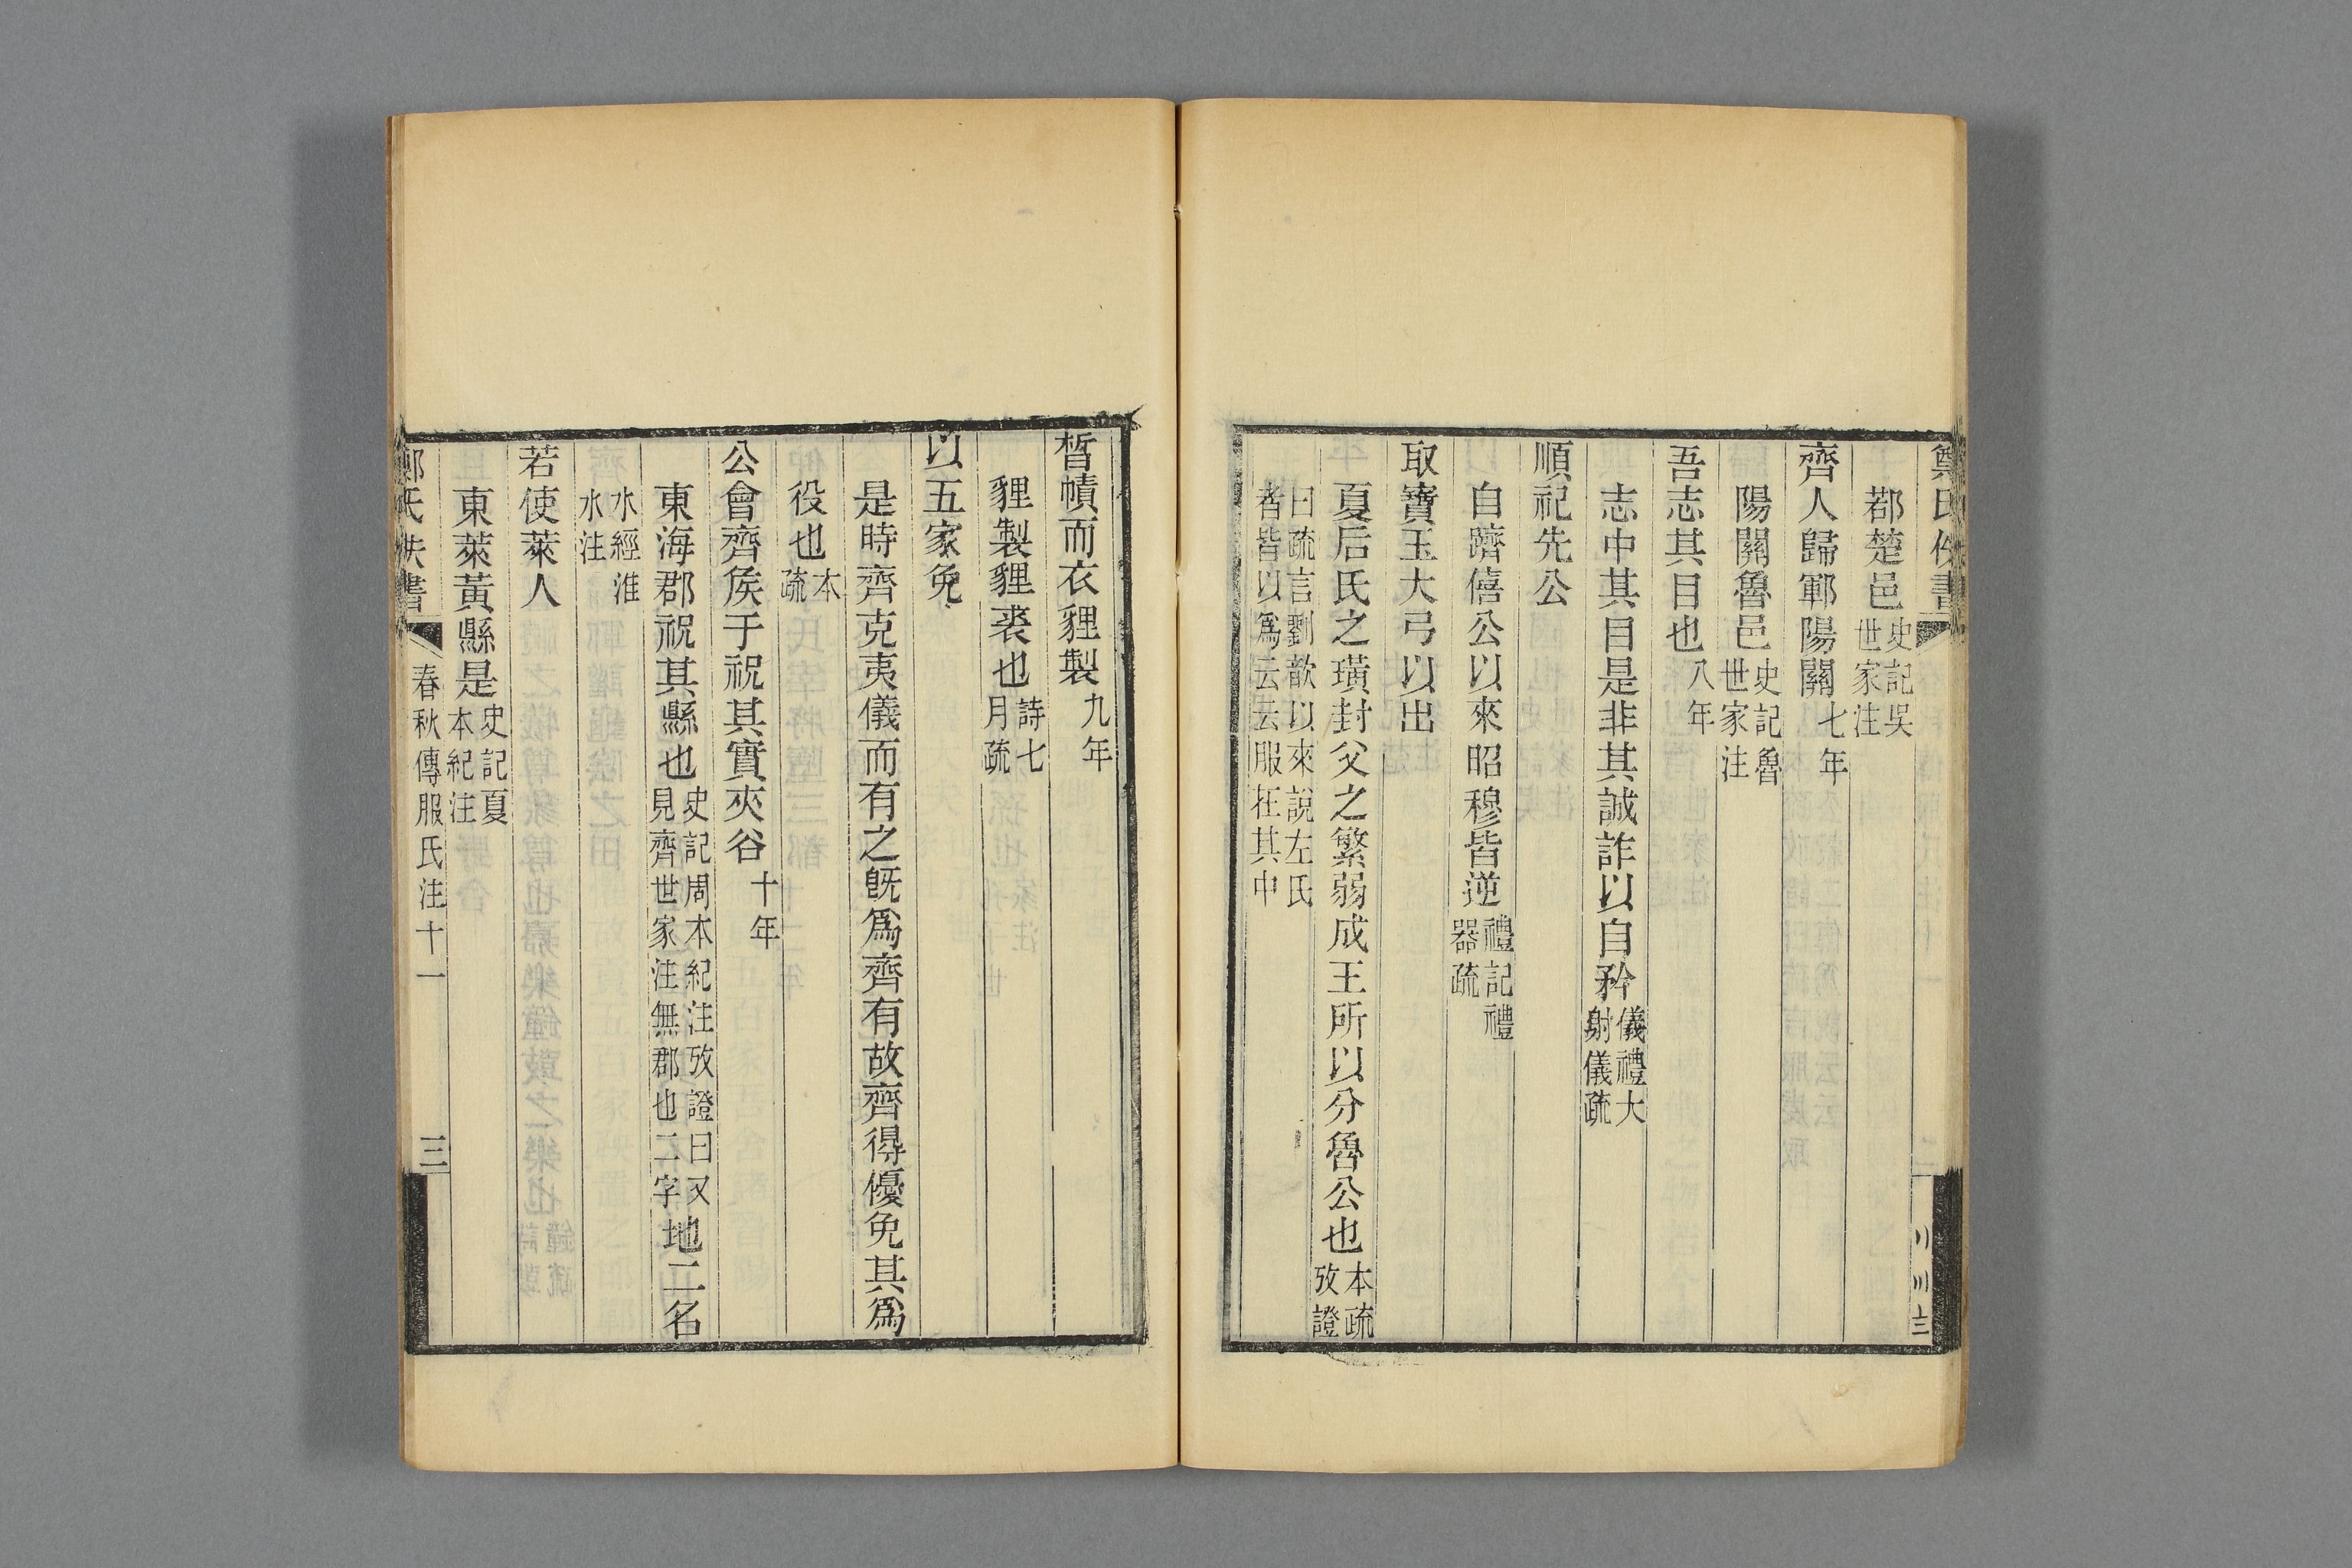 鄭氏佚書
都楚邑史記吳世家注
齊人歸鄆陽關七年
陽關魯邑史記魯世家注
吾志其目也八年
志中其目是非其誠詐以自矜儀禮大射儀疏
順祀先公
自躋僖公以來昭穆皆逆禮記禮器疏
取寶玉大弓以出
夏后氏之璜封父之繁弱成王所以分魯公也本疏攷證
曰疏言劉歆以來說左氏者皆以爲云云服在其中
晳幘而衣貍製九年
貍製貍裘也詩七月疏
以五家免
是時齊克夷儀而有之旣爲齊有故齊得優免其爲
役也本疏
公會齊矦于祝其實夾谷十年
東海郡祝其縣也史記周本紀注攷證曰又見齊世家注無郡也二字地二名
水經淮水注
若使萊人
東萊黃縣是史記夏本紀注
鄭氏佚書 春秋傳服氏注十一 三